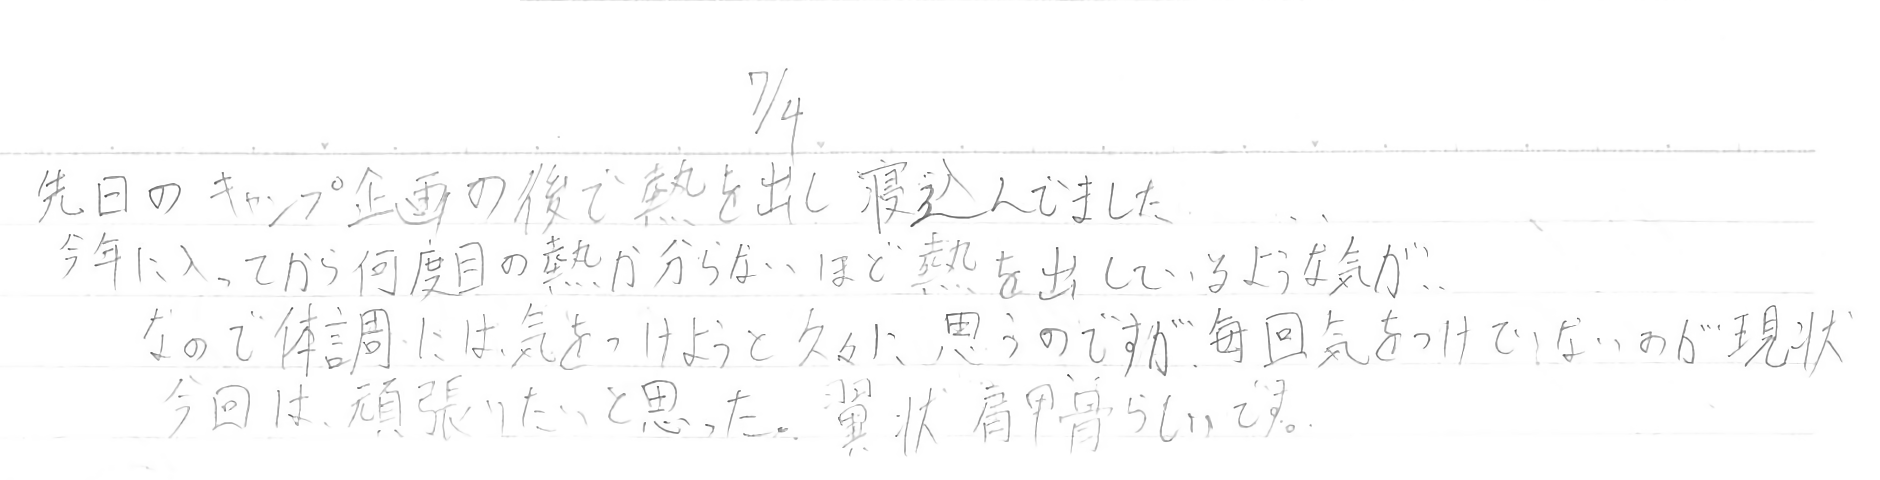 7/4
先日のキャンプ企画の後で熱を出し寝込んでました
今年に入ってから何度目の熱か分らないほど熱を出しているような気が..
なので体調には、気をつけようと久々に思うのですが、毎回気をつけていないのが現状
今回は、頑張りたいと思った。翼状肩甲骨らしいです。